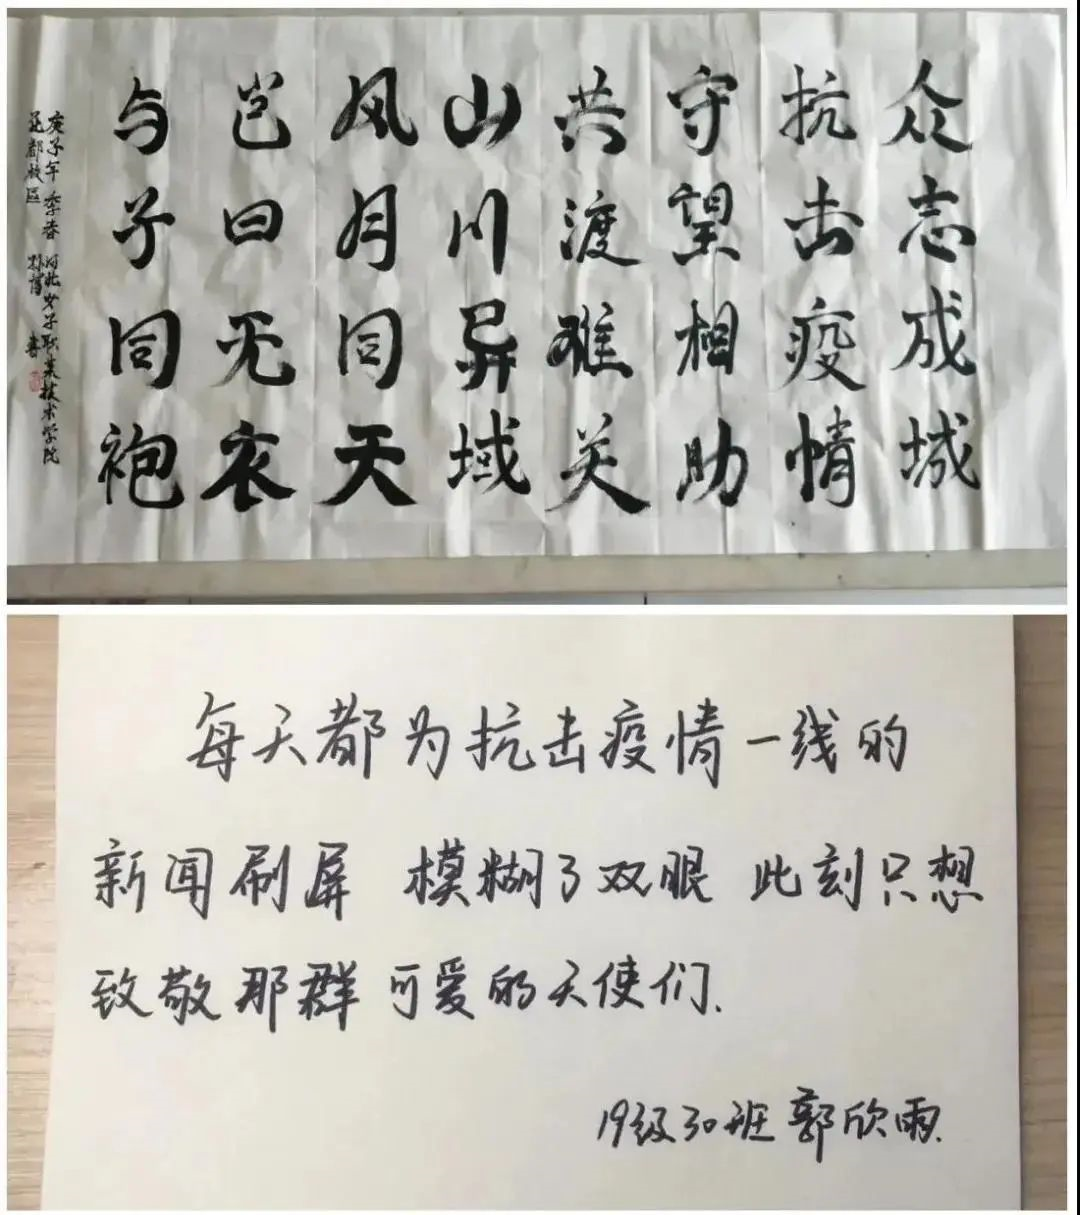 众志成城
抗击疫情
守望相助
共渡难关
山川异域
风月同天
岂曰无衣
与子同袍
庚子年季春 河北女子职业技术学院
都校区 书
每天都为抗击疫情一线的
新闻刷屏 模糊了双眼 此刻只想
致敬那群可爱的天使们.
19级30班郭欣雨.